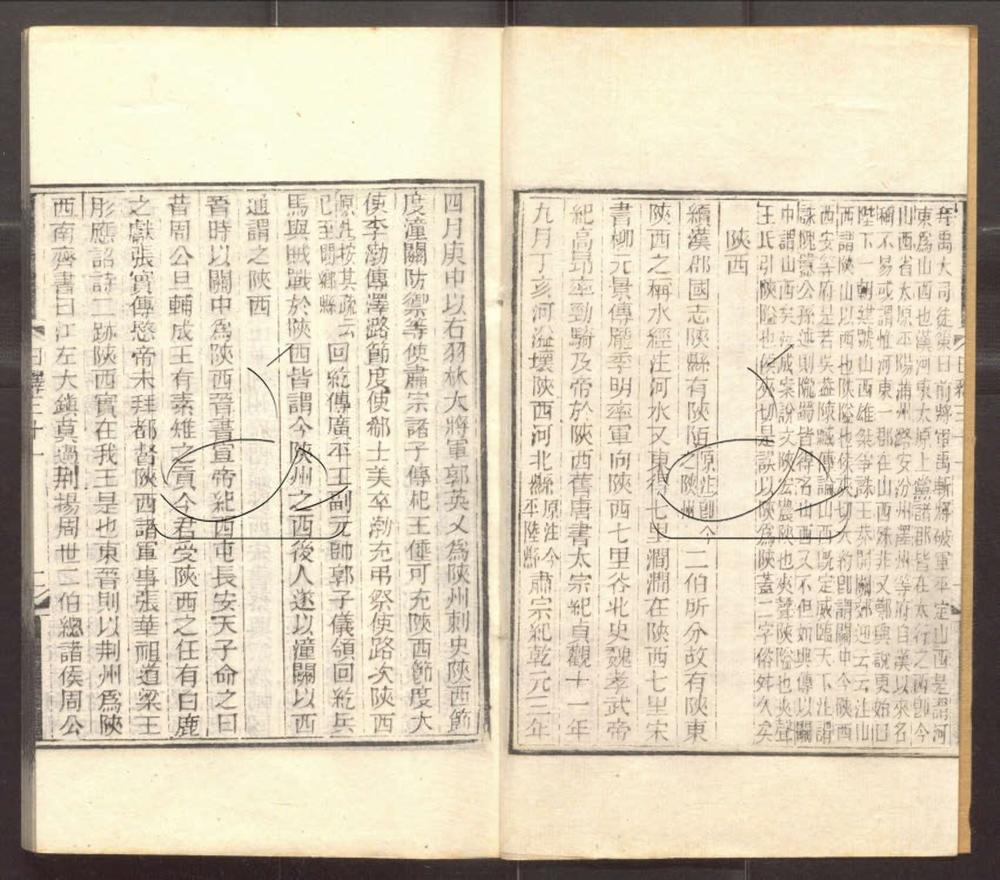 拜禹大司徒策曰前將軍禹斬將破軍平定山西是謂河
東爲山西也漢河東太原上黨諸郡皆在太行之西卽今
山西省太原平陽蒲州潞安汾州澤州等府自漢以來名
稱不易或謂惟河東一郡在山西殊非又鄭興說更始曰
陛下一朝建號山西雄桀爭誅王莽開關郊迎云云注山
西謂陝山以西也陝隘也侯夾切大約卽謂關中今陝西
西安等府是若吳蓋陳臧傳論山西既定威臨天下注謂
誅隗囂公孫述則隴蜀皆得名山西又不但如興傳以關
中謂山西矣 案說文陝宏農陝也夾聲陝隘也夾聲
王氏引陝隘也侯夾切是誤以陝爲陝蓋二字俗舛久矣
陝西
續漢郡國志陝縣有陝陌原注卽今之陝州二伯所分故有陝東
陝西之稱水經注河水又東得七里澗澗在陝西七里宋
書柳元景傳龐季明率軍向陝西七里谷北史魏孝武帝
紀高昂率勁騎及帝於陝西舊唐書太宗紀貞觀十一年
九月丁亥河溢壞陝西河北縣原注今平陸縣肅宗紀乾元三年
四月庚申以右羽林大將軍郭英乂爲陝州刺史陝西節
度潼關防禦等使肅宗諸子傳杞王倕可充陝西節度大
使李渤傳澤潞節度使郗士美卒渤充弔祭使路次陝西
原注按其疏云已至閿鄉縣回紇傳廣平王副元帥郭子儀領回紇兵
馬與賊戰於陝西皆謂今陝州之西後人遂以潼關以西
通謂之陝西
晉時以關中爲陝西晉書宣帝紀西屯長安天子命之曰
昔周公旦輔成王有素雉之貢今君受陝西之任有白鹿
之獻張寔傳愍帝末拜都督陝西諸軍事張華祖道梁王
肜應詔詩二跡陝西實在我王是也東晉則以荆州爲陝
西南齊書曰江左大鎭莫過荆揚周世二伯總諸侯周公